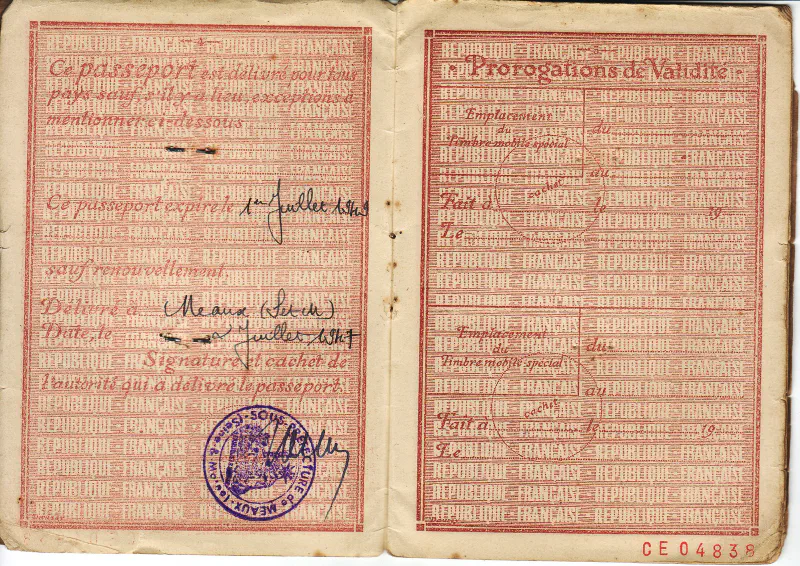 Ce passeport est délivré pour tous
pays sauf, s'il y a lieu, exceptions à
mentionner ci-dessous
Ce passeport expire le 1er Juillet 1949
sauf renouvellement.
Délivré à Meaux (Set M)
Date, le 2 Juillet 1947
Signature et cachet de
l'autorité qui a délivré le passeport,
SOUS-PRÉFECTURE de MEAUX (Seine & Marne)
Prorogations de Validité
Emplacement
du
Timbre mobile spécial
du
au
cachet
Fait à le 19
Le
Emplacement
du
Timbre mobile spécial
du
au
cachet
Fait à le 19
Le
RÉPUBLIQUE FRANÇAISE RÉPUBLIQUE FRANÇAISE
CE 04838